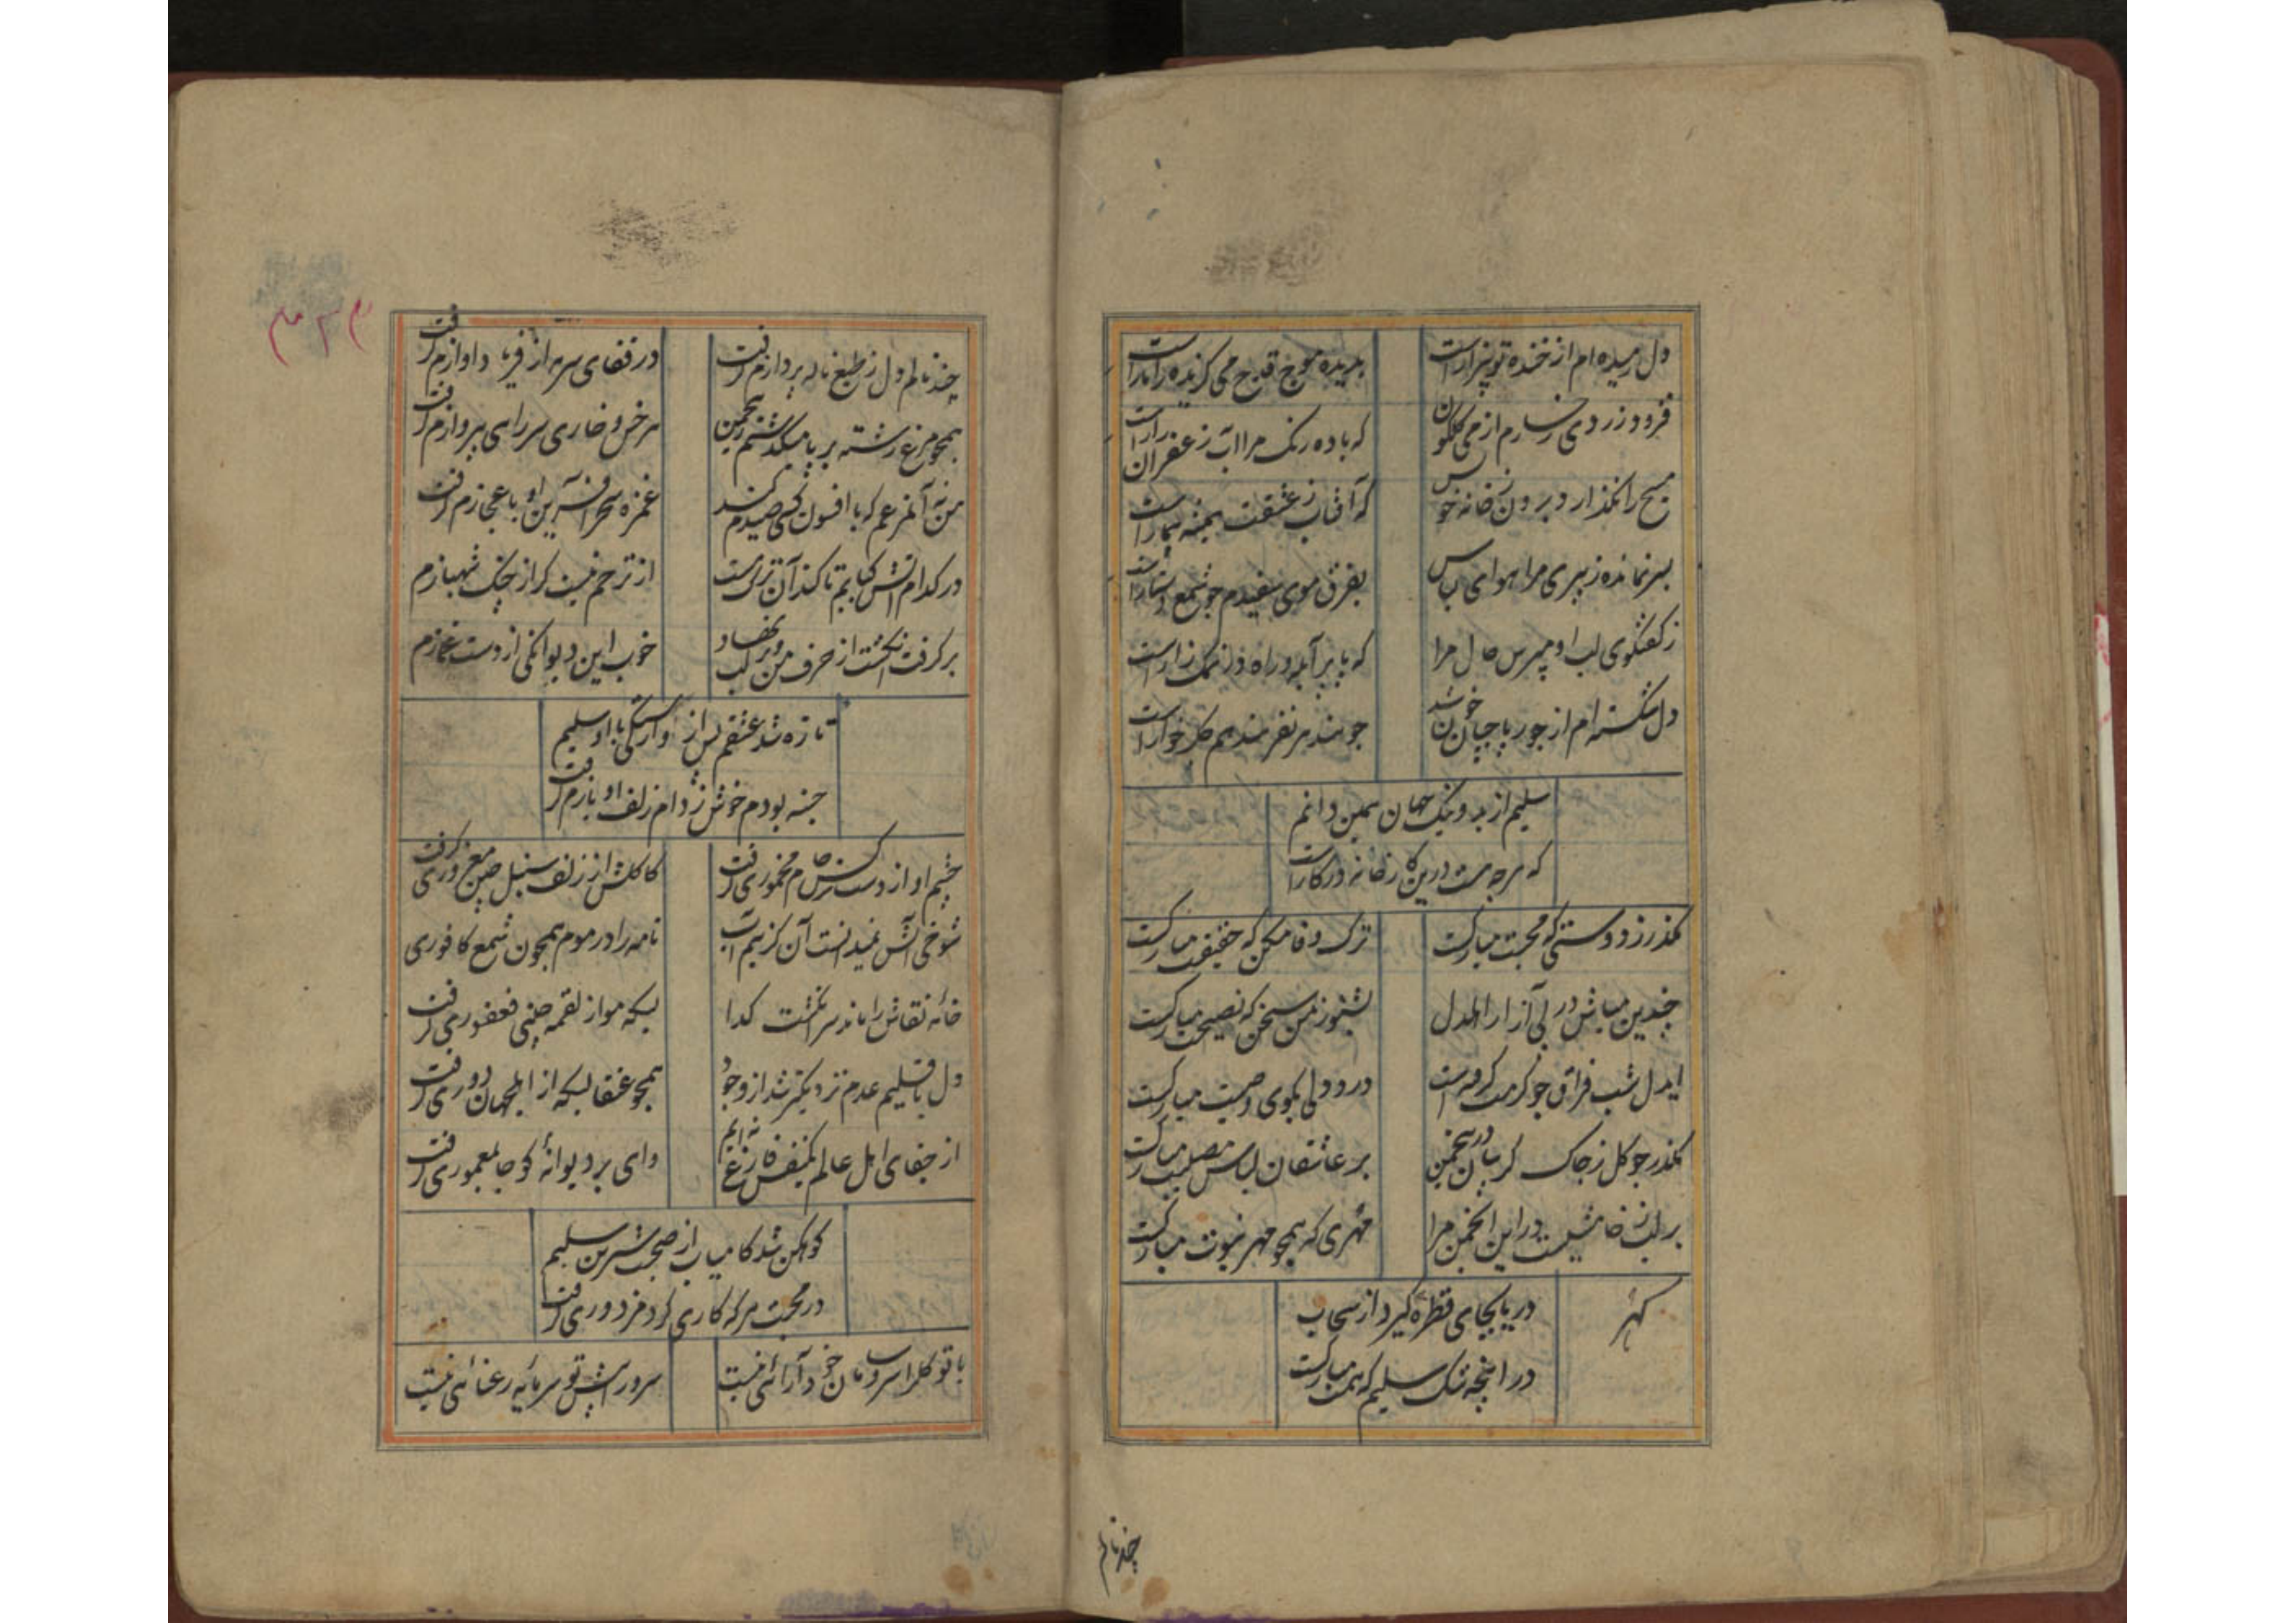 دل رمیده ام از خنده تو بیزار است
بدیده موج قدح می گزیده را مار است
فزود زردی رخسارم از می گلگون
که باده رنگ مرا آب زعفران زار است
مسیح را نگذارد برون ز خانه خویش
که آفتاب ز عشقت همیشه بیمار است
بسر نمانده ز پیری مرا هوای لباس
بفرق موی سفیدم چو شمع دستار است
ز گفتگوی لب او مپرس حال مرا
که پا پر آبله و راه در نمک زار است
دل شکسته ام از جور پاجیان خون شد
چو هند هر نفر هند هم جگر خوار است
سلیم از بد و نیک جهان همین دانم
که هرچه هست درین کارخانه در کار است
مگذر ز دوستی که محبت مبارکست
ترک وفا مکن که حقیقت مبارکست
چندین مباش در پی آزار اهل دل
بشنو ز من سخن که نصیحت مبارکست
ایدل شب فراق چو گرمت گرفته است
درد دلی بگوی وصیت مبارکست
مگذر چو گل ز چاک گریبان درین چمن
بر عاشقان لباس مصیبت مبارکست
بر لب ز خامشیست در این انجمن مرا
مهری که همچو مهر نبوت مبارکست
گهر
دریا بجای قطره گیرد از سحاب
در پنجه تنک سلیم که همت مبارکست
چند نالم
۳۲۴
چند نالم دل ز طبع ناله پردازم گرفت
در قفای سرمه از فریاد آوازم گرفت
همچو مرغ رشته بر پا میگذشتم زین چمن
هر خس و خاری سر راهی به پروازم گرفت
من نه آن مرغم که با افسون کسی صیدم کند
غمزه سحر آفرین او باعجازم گرفت
در کدام آتش کبابم تا کند آن ترک مست
از ترحم نیست گر از چنگ شهبازم
بر گرفت انگشت از حرف من و بر لب نهاد
خوب این دیوانگی از دست غمازم
تازه شد عشقم پس از وارستگی با او سلیم
جسته بودم خوش ز دام زلف او بازم گرفت
چشم او از دست نرگس جام مخموری گرفت
کاکلش از زلف سنبل چین مغروری گرفت
شوخی آتش نمیدانست آن کز بیم آب
نامه را در موم همچون شمع کافوری
خانه نقاش را ماند سر انگشت گدا
بسکه مو از لقمه چینی فغفوری گرفت
دل باقلیم عدم نزدیکتر شد از وجود
همچو عنقا بسکه از اهل جهان دوری گرفت
از جفای اهل عالم یکنفس فارغ نه ایم
وای بر دیوانهٔ کو جا بمعموری گرفت
کوهکن شد کامیاب از صحبت شیرین سلیم
در محبت هر که کاری کرد مزدوری گرفت
با تو گل را سر و سامان خود آرائی نیست
سرو را پیش تو سرمایه رعنائی نیست